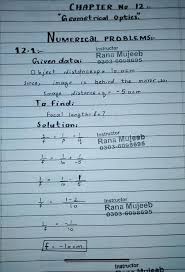 CHAPTER No 12:-
"Geometrical Optics"
NUMERICAL PROBLEMS:-
12.1:-
Instructor
Rana Mujeeb
0303-6068695
Given data:-
Object distance = p = 10.0cm
Since, image is behind the mirror, so
Image distance = q = -5.0cm
To Find:
Focal length = f = ?
Solution:
Instructor
Rana Mujeeb
0303-6068695
1/f = 1/p + 1/q
1/f = 1/10 + 1/-5
1/f = 1/10 - 1/5
1/f = 1-2/10
Instructor
Rana Mujeeb
0303-6068695
1/f = -1/10
f = -10cm
Instructor
Rana Mujeeb